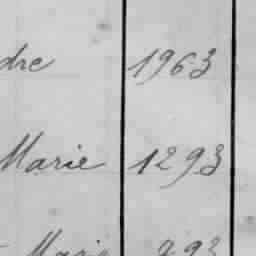 dre 1963
Marie 1293